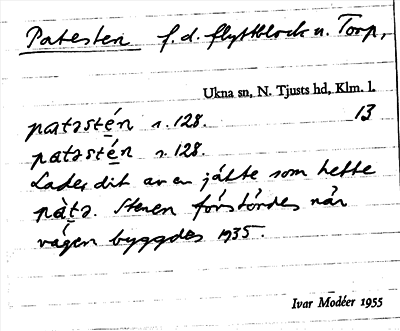 Patesten f.d. flyttblock n. Torp,
Ukna sn, N. Tjusts hd, Klm. l.
patəstén s. 128. 13
patəstén s. 128.
Lades dit av en jätte som hette
pàtə. Stenen förstördes när
vägen byggdes 1935.
Ivar Modéer 1955